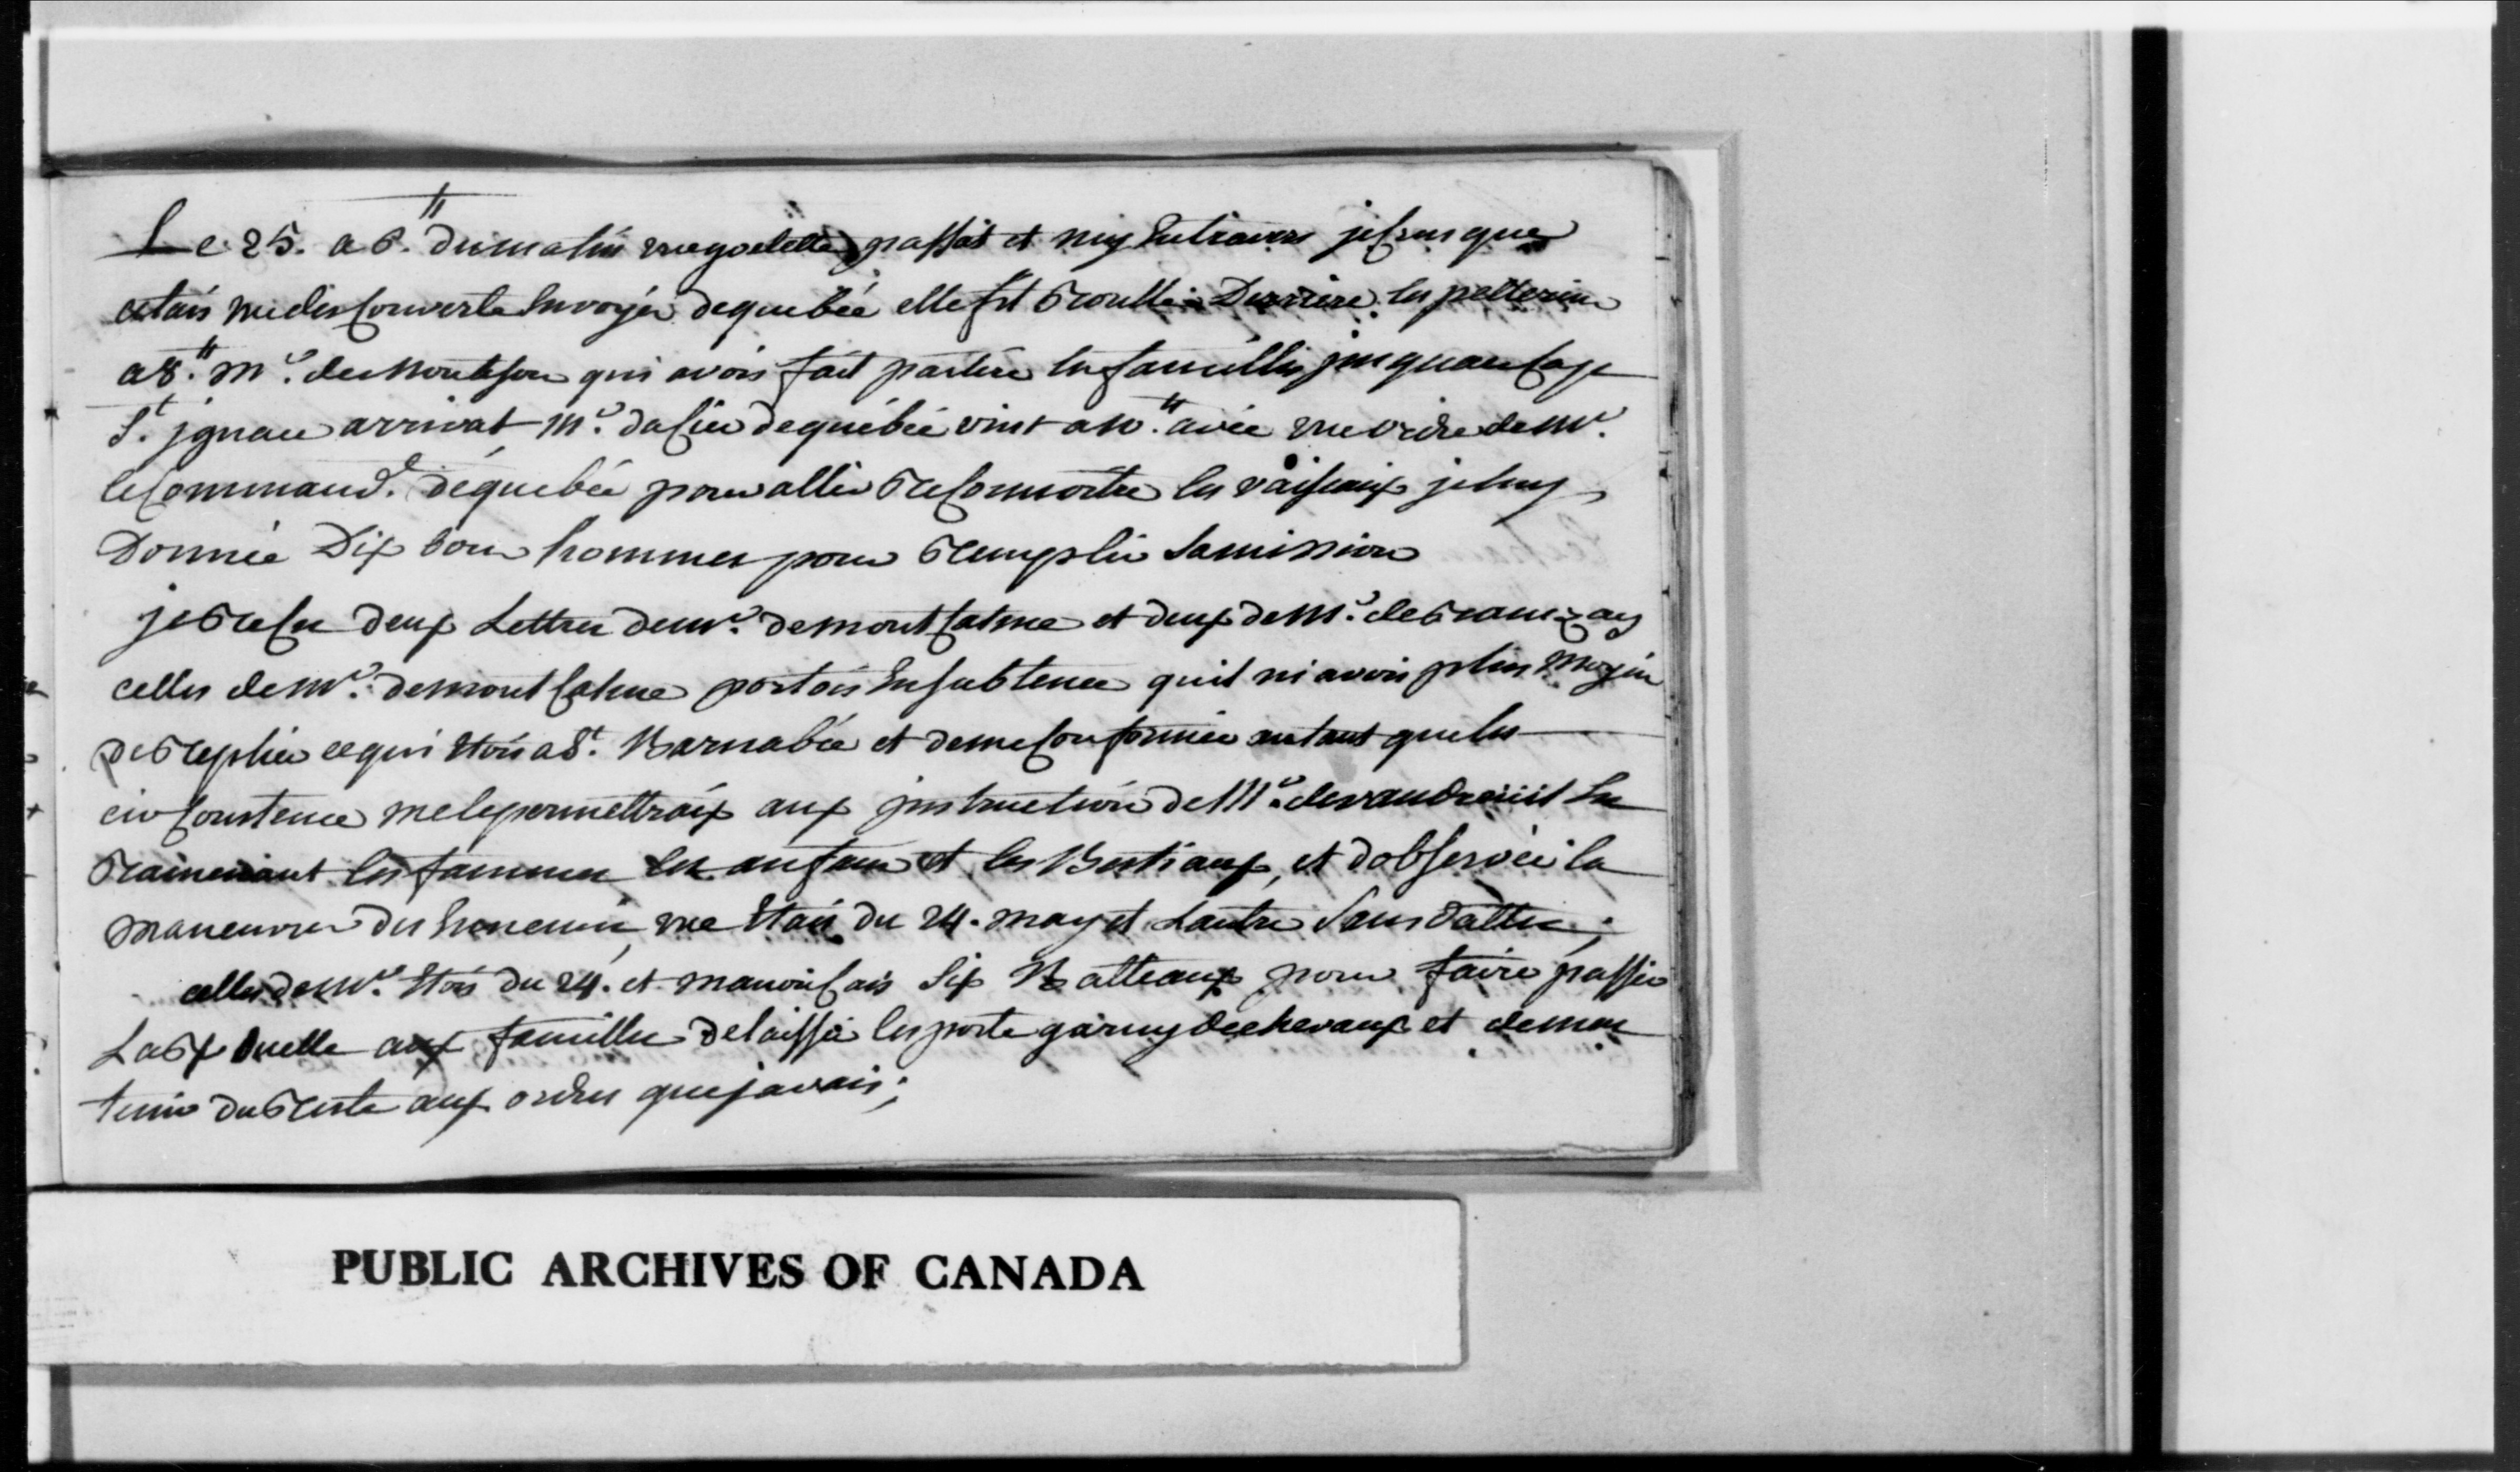 Le 25. a 6.h du matin une goelette passat et mis En travers je Crus que
cetais une desCouverte Envoyée de quebéc elle fit routte Derriere les pellerins
a 8.h Mr. de Montesson qui avois fait partire les familles jusquau Cap
St. jgnace arrivat Mr. de quebéc vint a 10.h avéc une ordre de Mr.
le Command.t de quebéc pour aller reConnoitre les vaisseaux je luy
Donnée Dix bons hommes pour remplir Sa mission
je reCu deux Lettres de Mr. de montCalme et deux de Mr. de ramezay
celles de Mr. de montCalme portois En subtence quil ni avois plus moyin
de replier ce qui Etois a St. Barnabée et de me Conformée autant que les
cirConstence me le permettraix aux jnstruction de Mr. de vaudreuil En
ramenant les fammes les anfans et les Bestiaux, et dobserver la
maneuvres des Ennemis, une Etais du 24. may et Lautre Sans datte;
celles de Mr. Etois du 24. et manonCais Six Batteaux pour faire passer
La duelle aux familles de laisser les poste garny de chevaux et de men
tenir du reste aux ordres que javais;
PUBLIC ARCHIVES OF CANADA